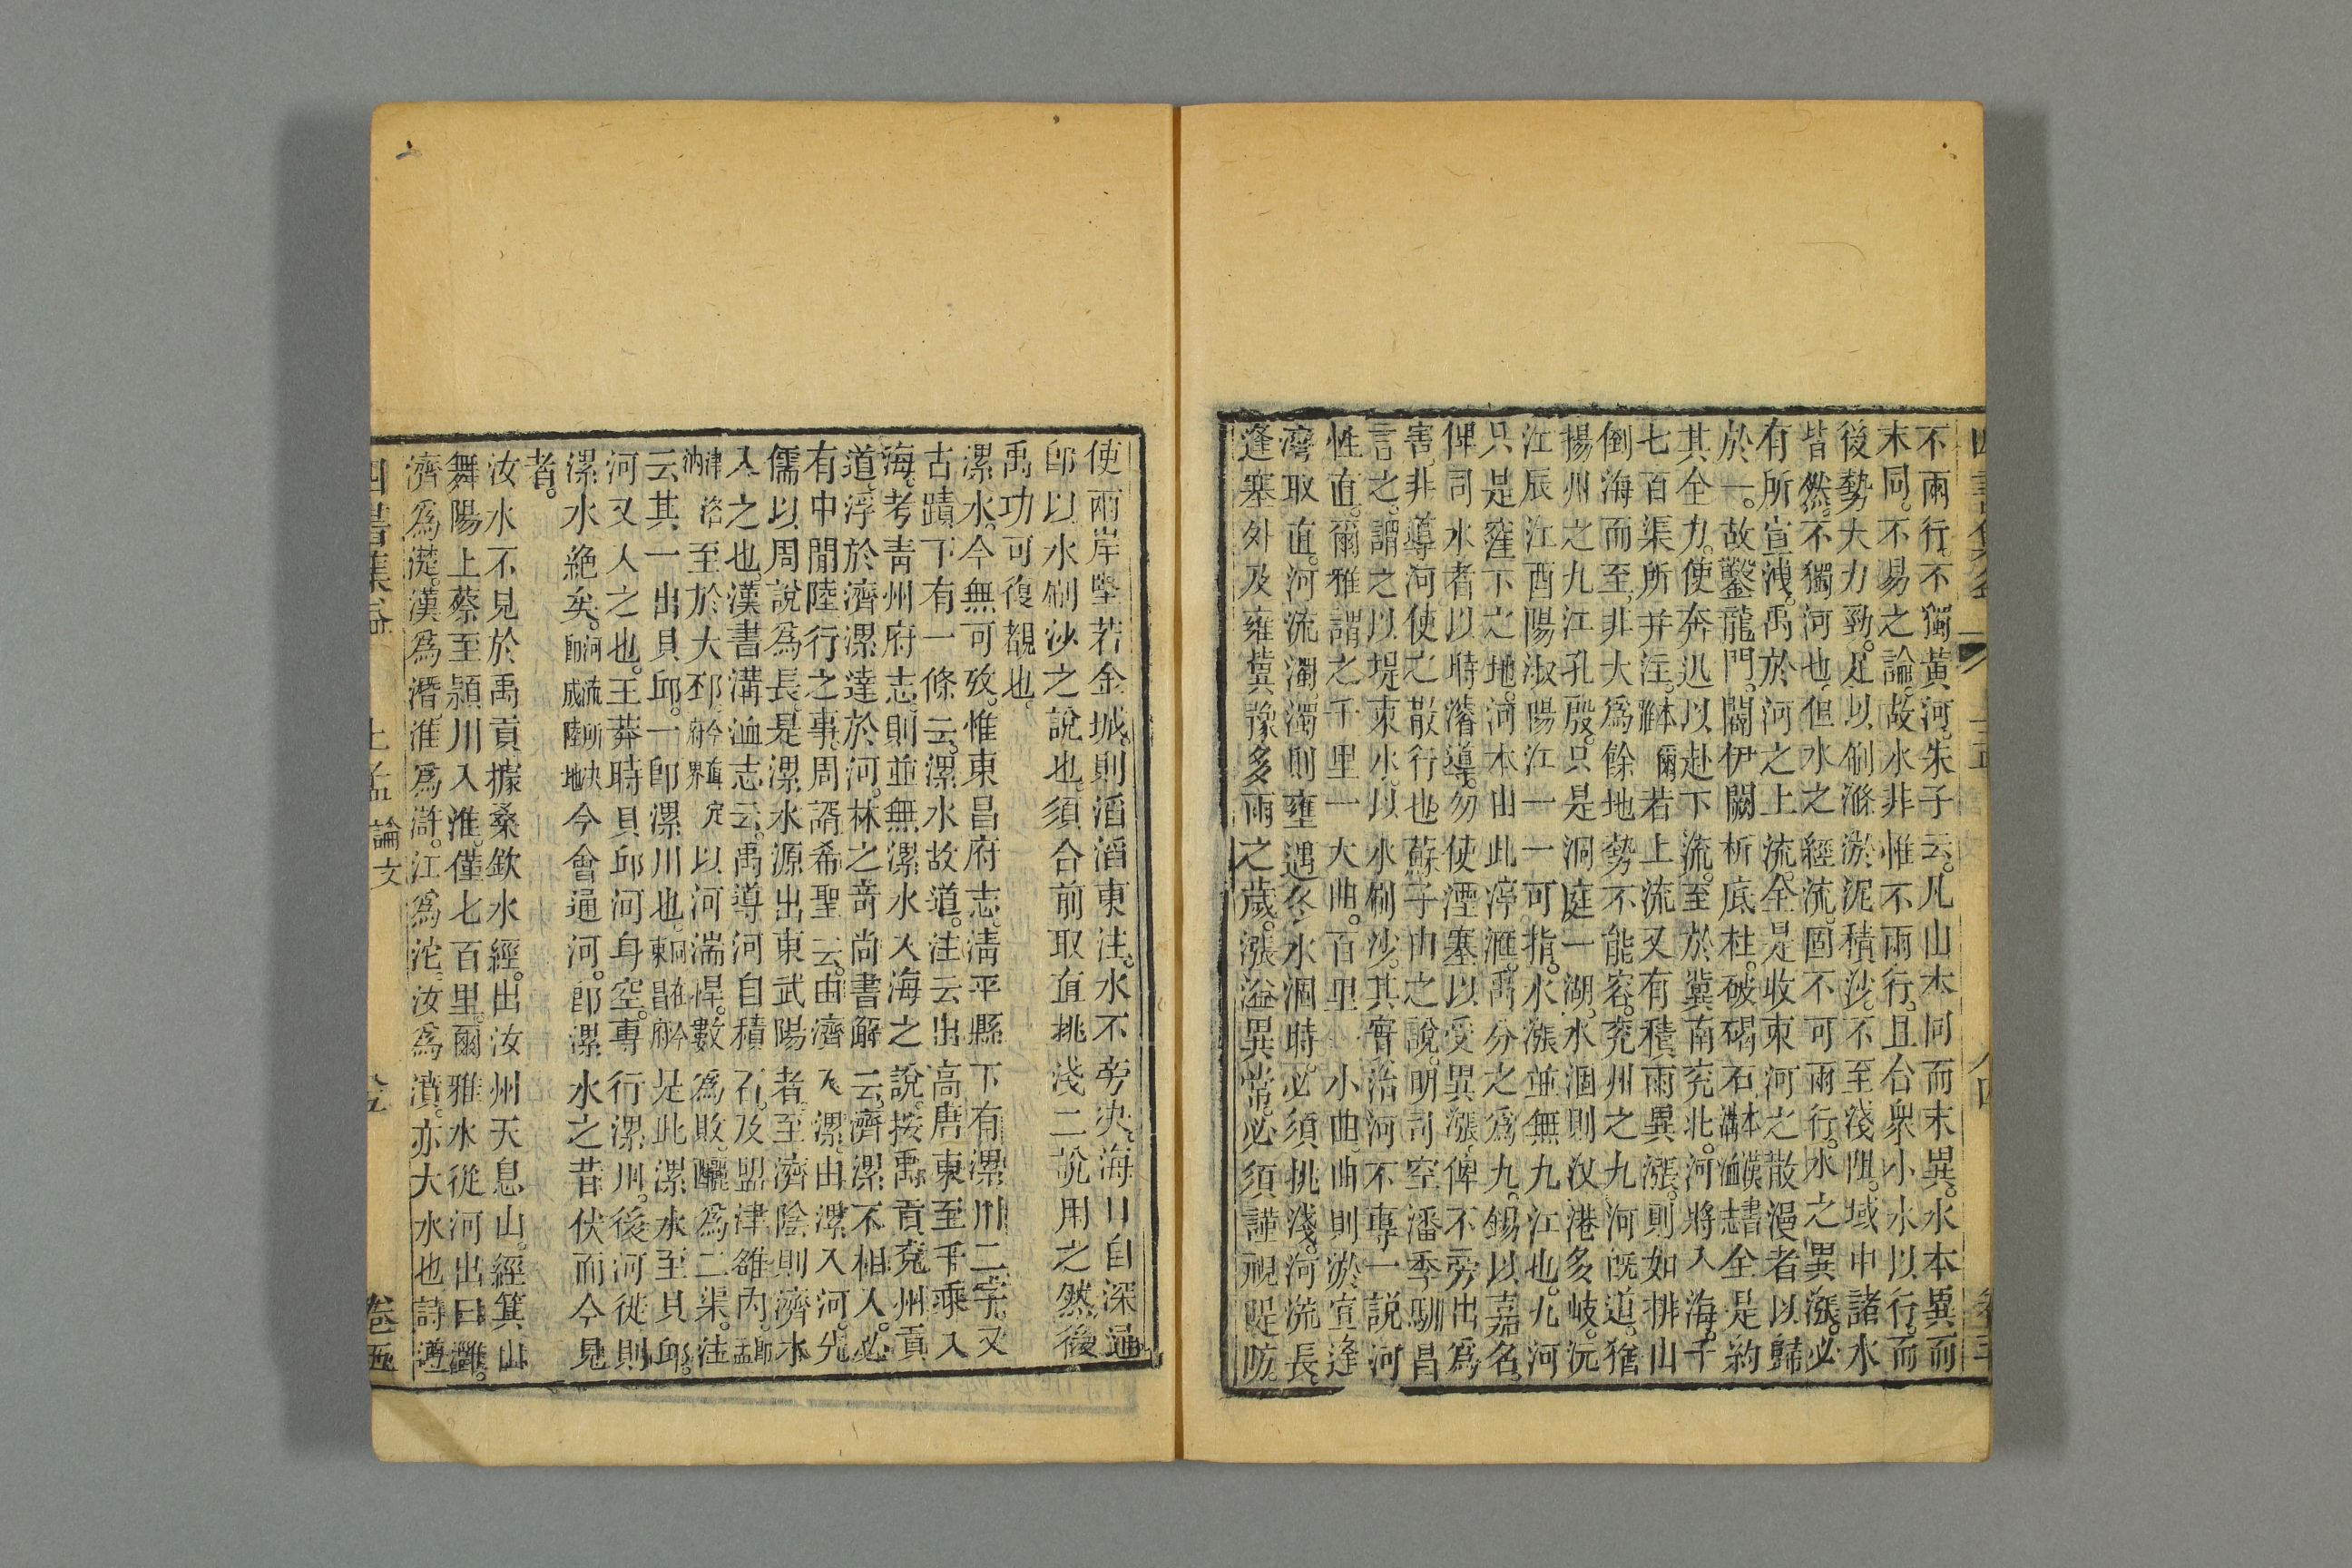 不兩行不獨黃河朱子云凡山本同而末異水本異而
末同不易之論故水非惟不兩行且合衆小水以行而
後勢大力勁足以刷滌淤泥積沙不至淺阻域中諸水
皆然不獨河也但水之經流固不可兩行水之異漲必
有所宣洩禹於河之上流全是收束河之散漫者以歸
於一故鑿龍門闢伊闕析底柱破碣石本漢書溝洫志全是約
其全力使奔迅以赴下流至於冀南兖北河將入海千
七百渠所并注本爾雅若上流又有積雨異漲則如排山
倒海而至非大為餘地勢不能容兖州之九河旣道猶
揚州之九江孔殷只是洞庭一湖水涸則汊港多岐沅
江辰江酉陽淑陽江一一可指水漲並無九江也九河
只是窪下之地河本由此渟滙禹分之為九錫以嘉名
俾司水者以時濬導勿使湮塞以受異漲俾不旁出為
害非導河使之散行也蘇子由之說明司空潘季馴昌
言之謂之以堤束水以水刷沙其實治河不專一說河
性直爾雅謂之千里一大曲百里一小曲曲則淤宜逢
灣取直河流濁濁則壅遇冬水涸時必須挑淺河流長
逢塞外及雍冀豫多雨之歲漲溢異常必須謹視隄防
使兩岸堅若金城則滔滔東注水不旁决海口自深通
卽以水刷沙之說也須合前取直挑淺二說用之然後
禹功可復覩也
漯水今無可攷惟東昌府志淸平縣下有漯川二字又
古蹟下有一條云漯水故道注云出高唐東至千乘入
海考靑州府志則並無漯水入海之說按禹貢兖州貢
道浮於濟漯達於河林之奇尚書解云濟漯不相入必
有中閒陸行之事周諝希聖云由濟入漯由漯入河先
儒以周說為長是漯水源出東武陽者至濟陰則濟水
入之也漢書溝洫志云禹導河自積石及盟津雒內卽孟
津洛汭至於大邳今直定府界以河湍悍數為敗釃為二渠注
云其一出貝邱一卽漯川也河在今東昌府是此漯水至貝邱
河又入之也王莽時貝邱河身空專行漯川後河徙則
漯水絶矣河流所决卽成陸地今會通河卽漯水之昔伏而今見
者
汝水不見於禹貢據桑欽水經出汝州天息山經箕山
舞陽上蔡至潁川入淮僅七百里爾雅水從河出曰灉
濟為濋漢為潛淮為滸江為沱汝為濆亦大水也詩遵
四書集益 上孟 論文 卷五